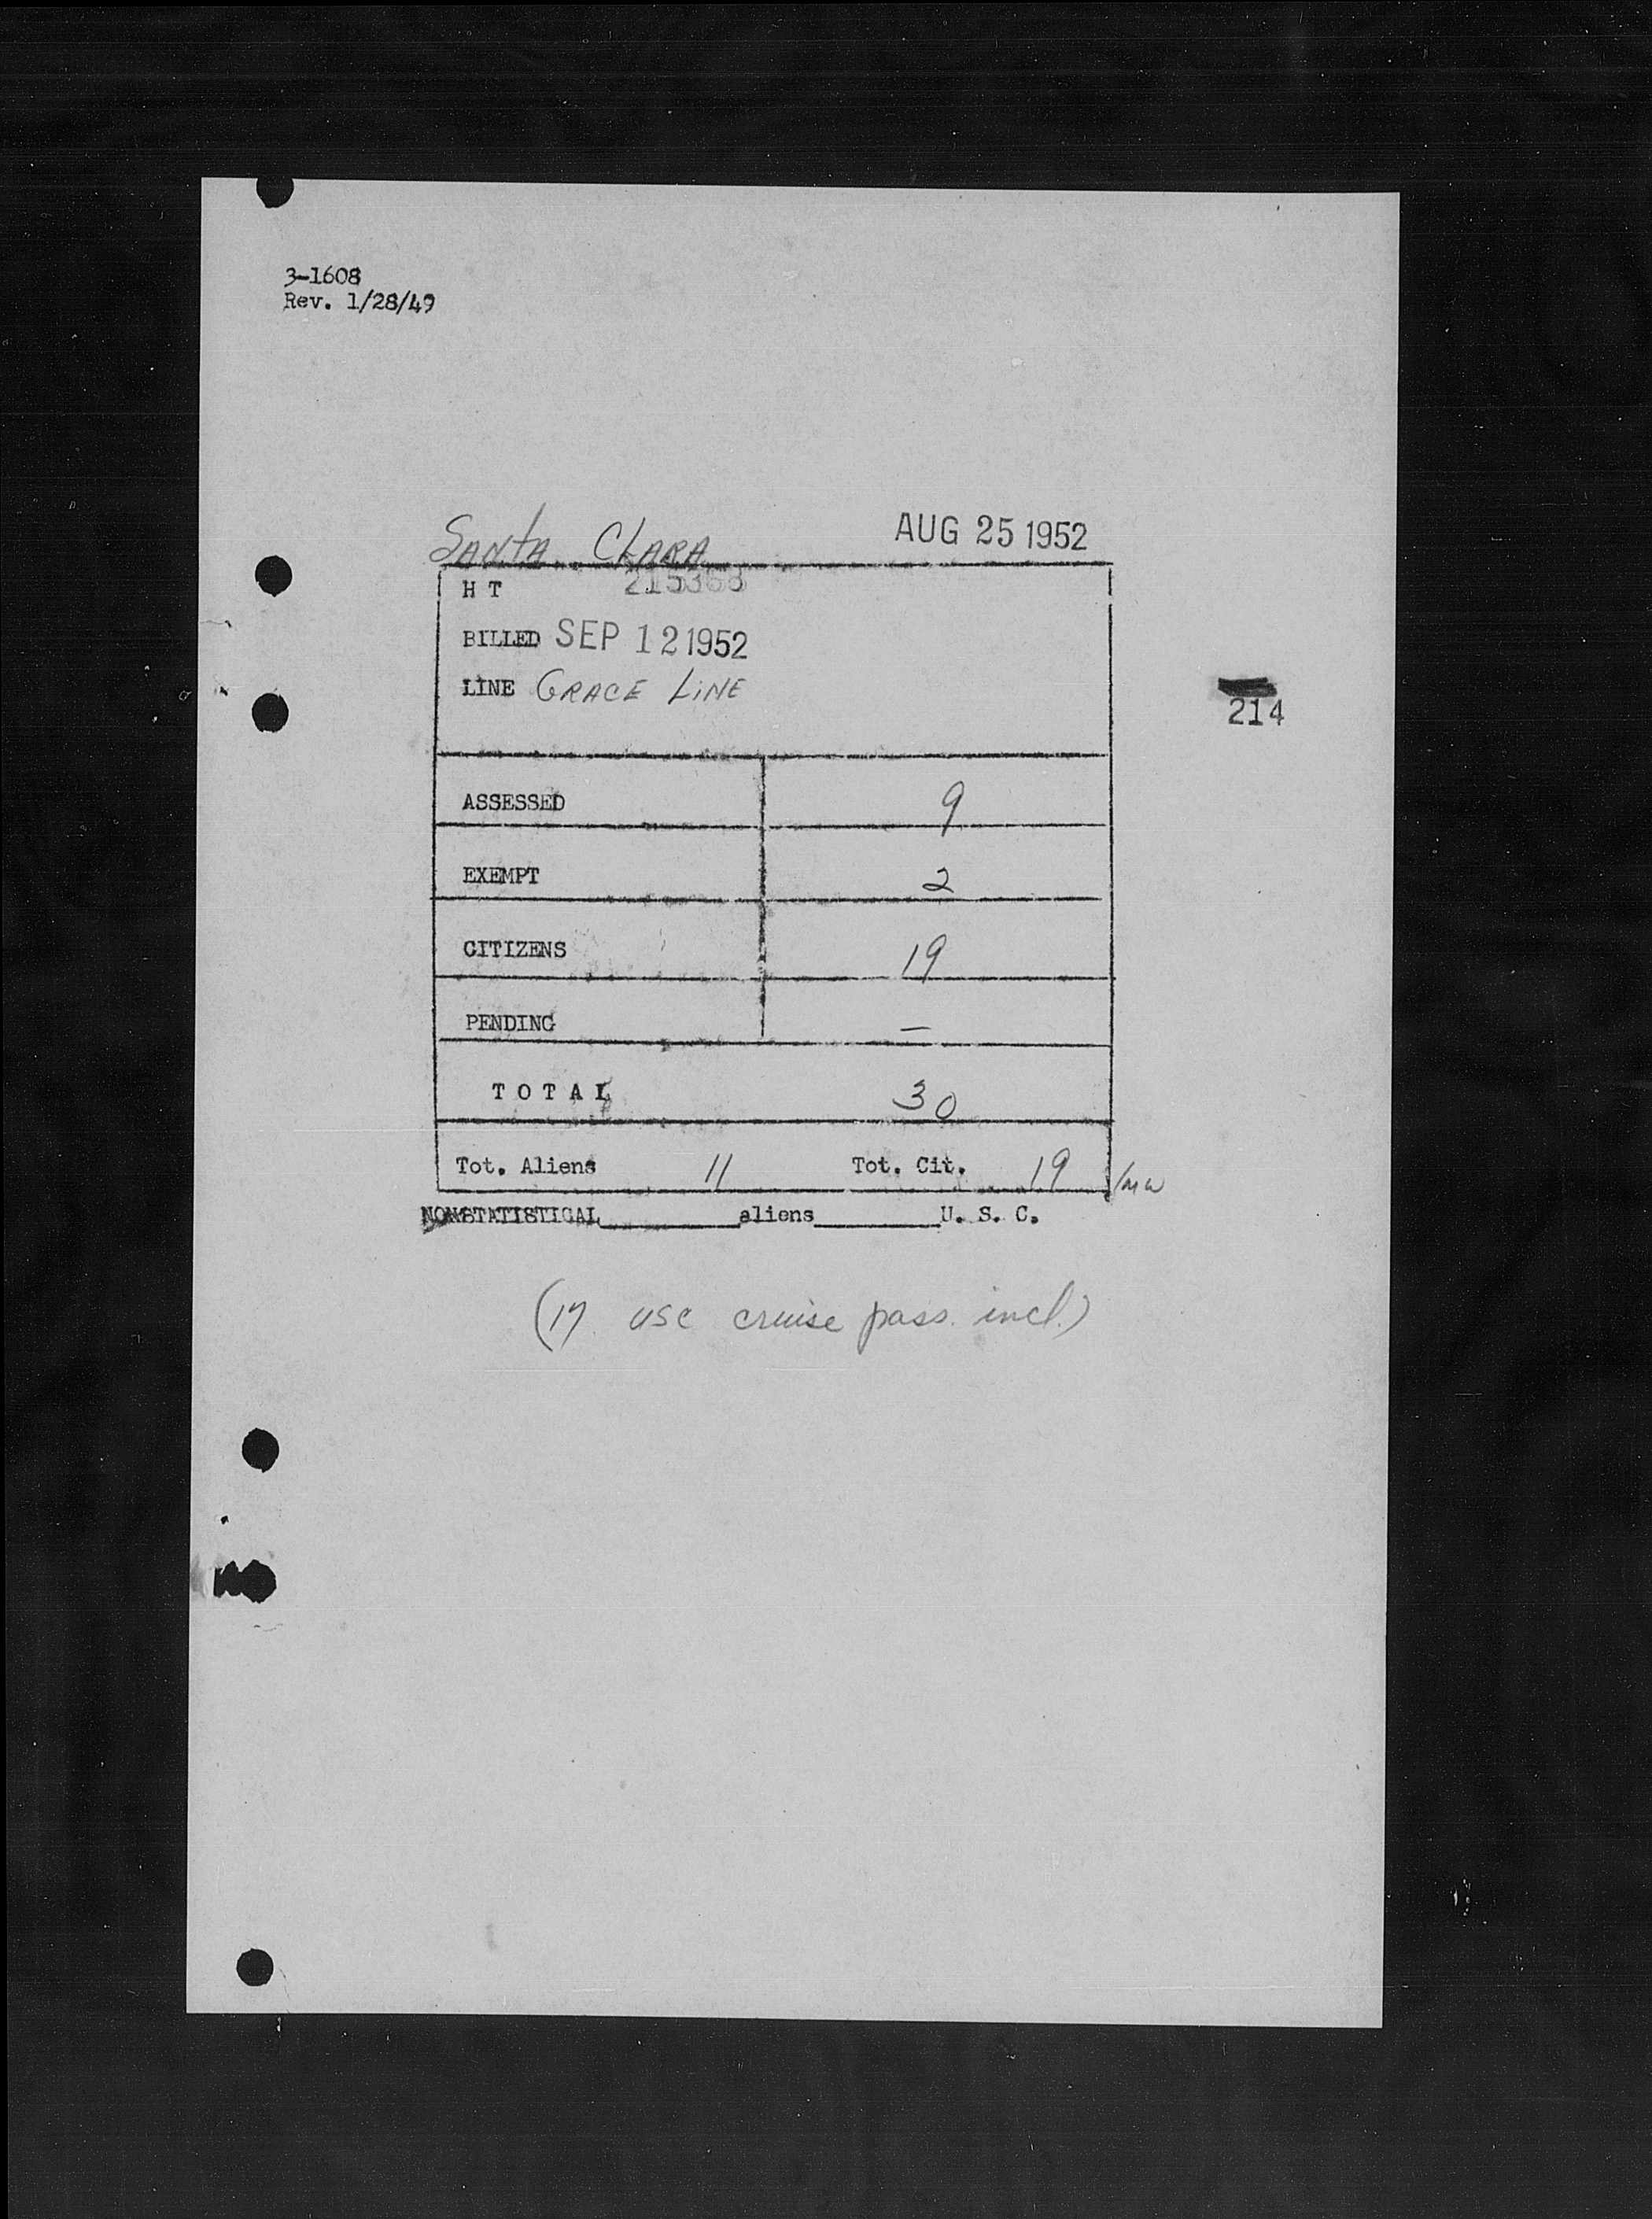 3-1608
Rev. 1/28/49
SANTA CLARA AUG 25 1952
H T 215368
BILLED SEP 12 1952
LINE GRACE LINE
214
ASSESSED 9
EXEMPT 2
CITIZENS 19
PENDING —
TOTAL 30
Tot. Aliens 11 Tot. Cit. 19
NONSTATISTICAL________aliens________U. S. C.
(17 USC cruise pass. incl.)